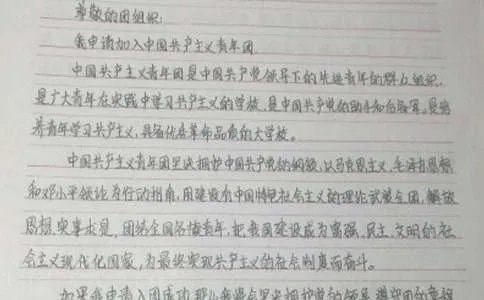 尊敬的团组织:
我申请加入中国共产主义青年团。
中国共产主义青年团是中国共产党领导下的先进青年的群众组织,
是广大青年在实践中学习共产主义的学校,是中国共产党的助手和后备军。是培
养青年学习共产主义,具备优秀革命品质的大学校。
中国共产主义青年团坚决拥护中国共产党的纲领,以马克思主义,毛泽东思想
和邓小平理论为行动指南,用建设有中国特色社会主义的理论武装全团,解放
思想,实事求是,团结全国各族青年,把我国建设成为富强,民主,文明的社
会主义现代化国家,为最终实现共产主义的社会制度而奋斗。
如果我申请入团成功,那么我将会坚决拥护党的领导,遵守团的章程